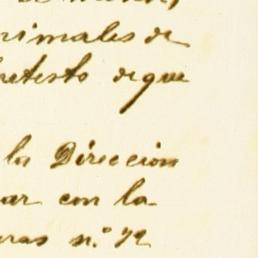 nimales de
pretesto de que
la Dirección
ar con la-
uras n.° 72